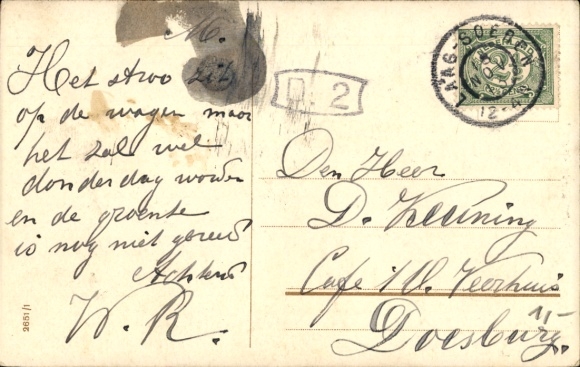 M.
Het stroo zit
op de wagen maar
het zal wel
donderdag worden
en de groente
is nog niet gereed
W. R.
D. 2
LAAG-SOEREN
Den Heer
D. Keuning
Café 't Veerhuis
Doesburg.
1,-
2651/1